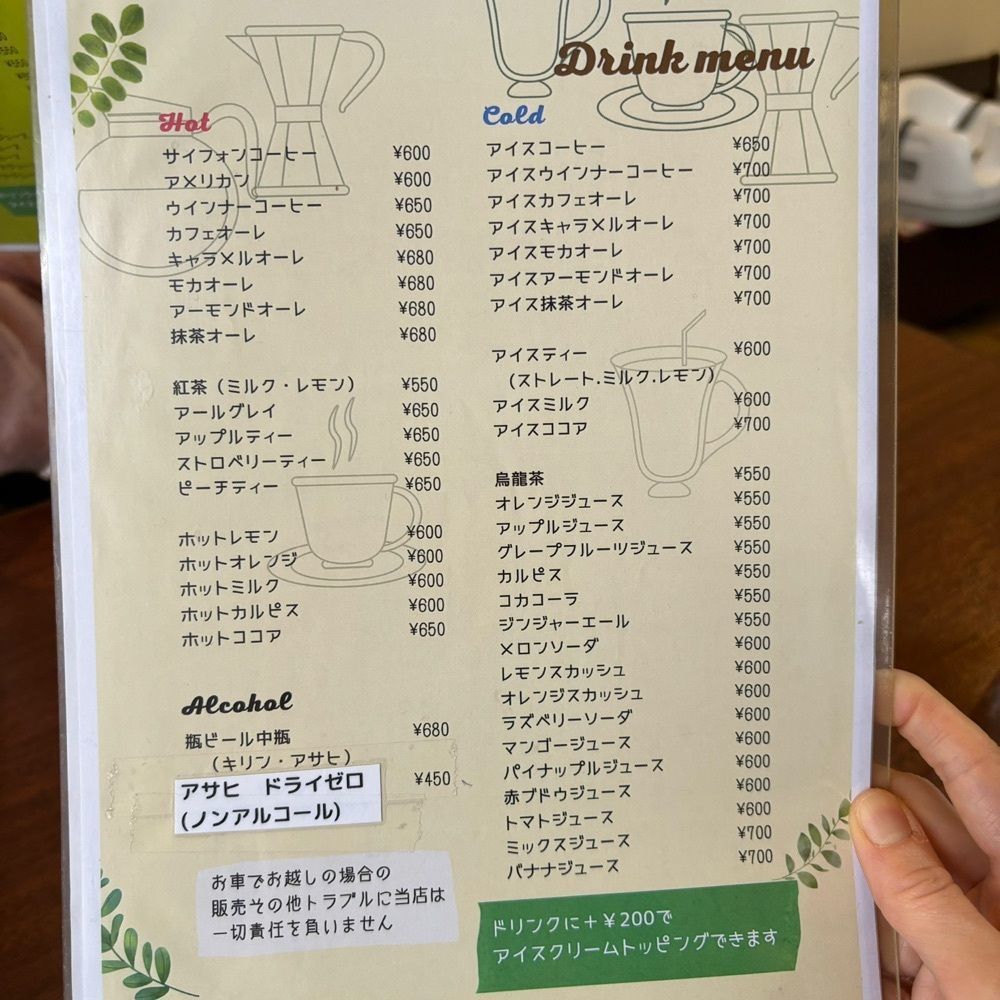 Drink menu
Hot
サイフォンコーヒー ¥600
アメリカン ¥600
ウインナーコーヒー ¥650
カフェオーレ ¥650
キャラメルオーレ ¥680
モカオーレ ¥680
アーモンドオーレ ¥680
抹茶オーレ ¥680
紅茶（ミルク・レモン） ¥550
アールグレイ ¥650
アップルティー ¥650
ストロベリーティー ¥650
ピーチティー ¥650
ホットレモン ¥600
ホットオレンジ ¥600
ホットミルク ¥600
ホットカルピス ¥600
ホットココア ¥650
Alcohol
瓶ビール中瓶 ¥680
（キリン・アサヒ）
アサヒ ドライゼロ ¥450
(ノンアルコール)
お車でお越しの場合の
販売その他トラブルに当店は
一切責任を負いません
Cold
アイスコーヒー ¥650
アイスウインナーコーヒー ¥700
アイスカフェオーレ ¥700
アイスキャラメルオーレ ¥700
アイスモカオーレ ¥700
アイスアーモンドオーレ ¥700
アイス抹茶オーレ ¥700
アイスティー ¥600
（ストレート.ミルク.レモン）
アイスミルク ¥600
アイスココア ¥700
烏龍茶 ¥550
オレンジジュース ¥550
アップルジュース ¥550
グレープフルーツジュース ¥550
カルピス ¥550
コカコーラ ¥550
ジンジャーエール ¥550
メロンソーダ ¥600
レモンスカッシュ ¥600
オレンジスカッシュ ¥600
ラズベリーソーダ ¥600
マンゴージュース ¥600
パイナップルジュース ¥600
赤ブドウジュース ¥600
トマトジュース ¥600
ミックスジュース ¥700
バナナジュース ¥700
ドリンクに＋¥200で
アイスクリームトッピングできます